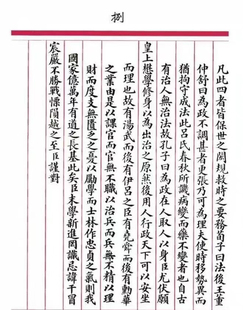 捌
凡此四者皆保世之閎規救時之要務荀子曰法後王董
仲舒曰為政不調甚者更張乃可為理夫使時移勢異而
猶拘守成法此呂氏春秋所譏病變而藥不變者也自古
有治人無治法故孔子曰為政在人取人以身臣尤伏願
皇上懋學修身以為出治之原然後用人行政天下可以安坐
而理也故有湯武而後有伊呂之臣有
之業由是以課官而官無不職以治兵而兵無不精以理
財而度支無匱乏之憂以勵學而士林作忠貞之氣則我
國家億萬年有道之長基此矣臣末學新進罔識忌諱干冒
宸嚴不勝戰慄隕越之至臣謹對